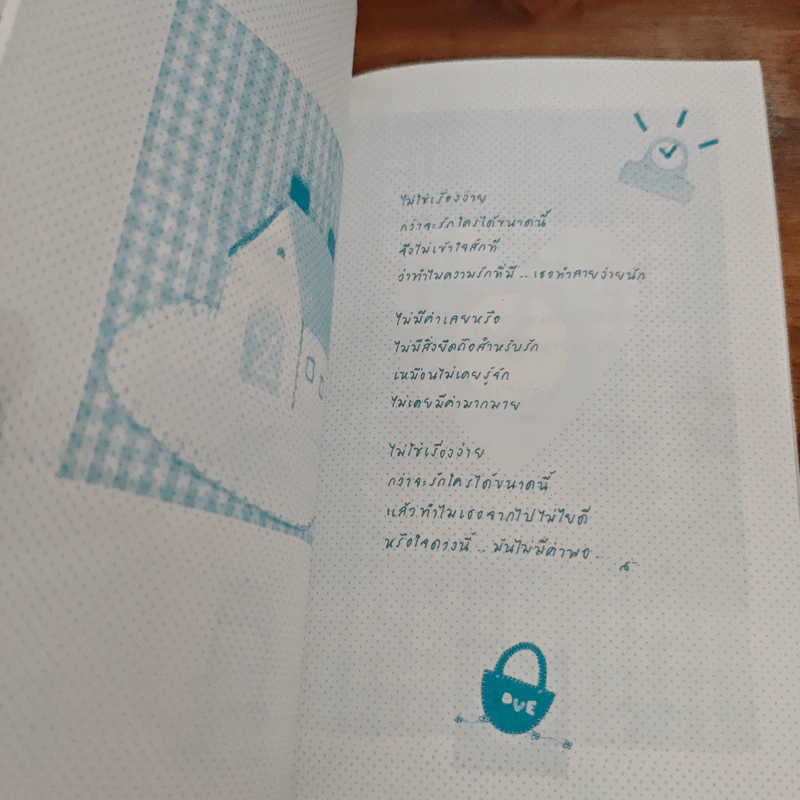 ไม่ใช่เรื่องง่าย
กว่าจะรักใครได้ขนาดนี้
จึงไม่เข้าใจสักที
ว่าทำไมความรักที่มี .. เธอทำลายง่ายนัก
ไม่มีค่าเลยหรือ
ไม่มีสิ่งยึดถือสำหรับรัก
เหมือนไม่เคยรู้จัก
ไม่เคยมีค่ามากมาย
ไม่ใช่เรื่องง่าย
กว่าจะรักใครได้ขนาดนี้
แล้วทำไมเธอจากไปไม่ไยดี
หรือใจดวงนี้ .. มันไม่มีค่าพอ ..
LOVE